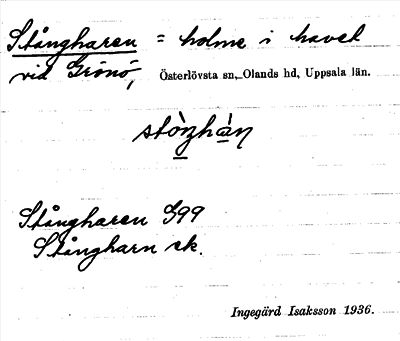 Stångharen = holme i havet
vid Grönö, Österlövsta sn, Olands hd, Uppsala län.
Stångharen G99
Stångharn ek.
Ingegärd Isaksson 1936.